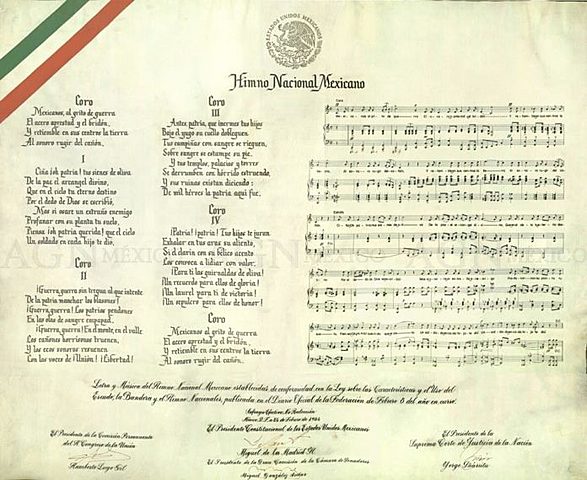 ESTADOS UNIDOS MEXICANOS
Himno Nacional Mexicano
Coro
Mexicanos, al grito de guerra
El acero aprestad y el bridón,
Y retiemble en sus centros la tierra
Al sonoro rugir del cañón.
I
Ciña ¡oh patria! tus sienes de oliva
De la paz el arcángel divino,
Que en el cielo tu eterno destino
Por el dedo de Dios se escribió,
Mas si osare un extraño enemigo
Profanar con su planta tu suelo,
Piensa ¡oh patria querida! que el cielo
Un soldado en cada hijo te dio,
Coro
II
¡Guerra, guerra sin tregua al que intente
De la patria manchar los blasones!
¡Guerra, guerra! Los patrios pendones
En las olas de sangre empapad.
¡Guerra, guerra! En el monte, en el valle
Los cañones horrísonos truenen,
Y los ecos sonoros resuenen
Con las voces de ¡Unión! ¡Libertad!
Coro
III
Antes, patria, que inermes tus hijos
Bajo el yugo su cuello dobleguen,
Tus campiñas con sangre se rieguen,
Sobre sangre se estampe su pie,
Y tus templos, palacios y torres
Se derrumben con hórrido estruendo,
Y sus ruinas existan diciendo:
De mil héroes la patria aquí fue.
Coro
IV
¡Patria! ¡patria! Tus hijos te juran
Exhalar en tus aras su aliento,
Si el clarín con su bélico acento
Los convoca a lidiar con valor.
¡Para ti las guirnaldas de oliva!
¡Un recuerdo para ellos de gloria!
¡Un laurel para ti de victoria!
¡Un sepulcro para ellos de honor!
Coro
Mexicanos al grito de guerra
El acero aprestad y el bridón,
Y retiemble en sus centros la tierra
Al sonoro rugir del cañón.
Letra y Música del Himno Nacional Mexicano establecidas de conformidad con la Ley sobre las Características y el Uso del
Escudo, la Bandera y el Himno Nacionales, publicada en el Diario Oficial de la Federación de Febrero 8 del año en curso.
Sufragio Efectivo, No Reelección
México, D.F. a 24 de Febrero de 1984
El Presidente Constitucional de los Estados Unidos Mexicanos
Miguel de la Madrid H.
El Presidente de la Comisión Permanente
del H. Congreso de la Unión
Humberto Lugo Gil
El Presidente de la Gran Comisión de la Cámara de Senadores
Miguel González Avelar
El Presidente de la
Suprema Corte de Justicia de la Nación
Jorge Iñárritu